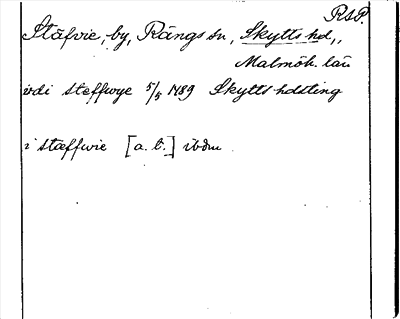 RAP.
Stäfvie, by, Rängs sn, Skytts hd,
Malmöh. län
i steffwye 5/5 1489 Skytts hdsting
i stæffwie [a. b.]